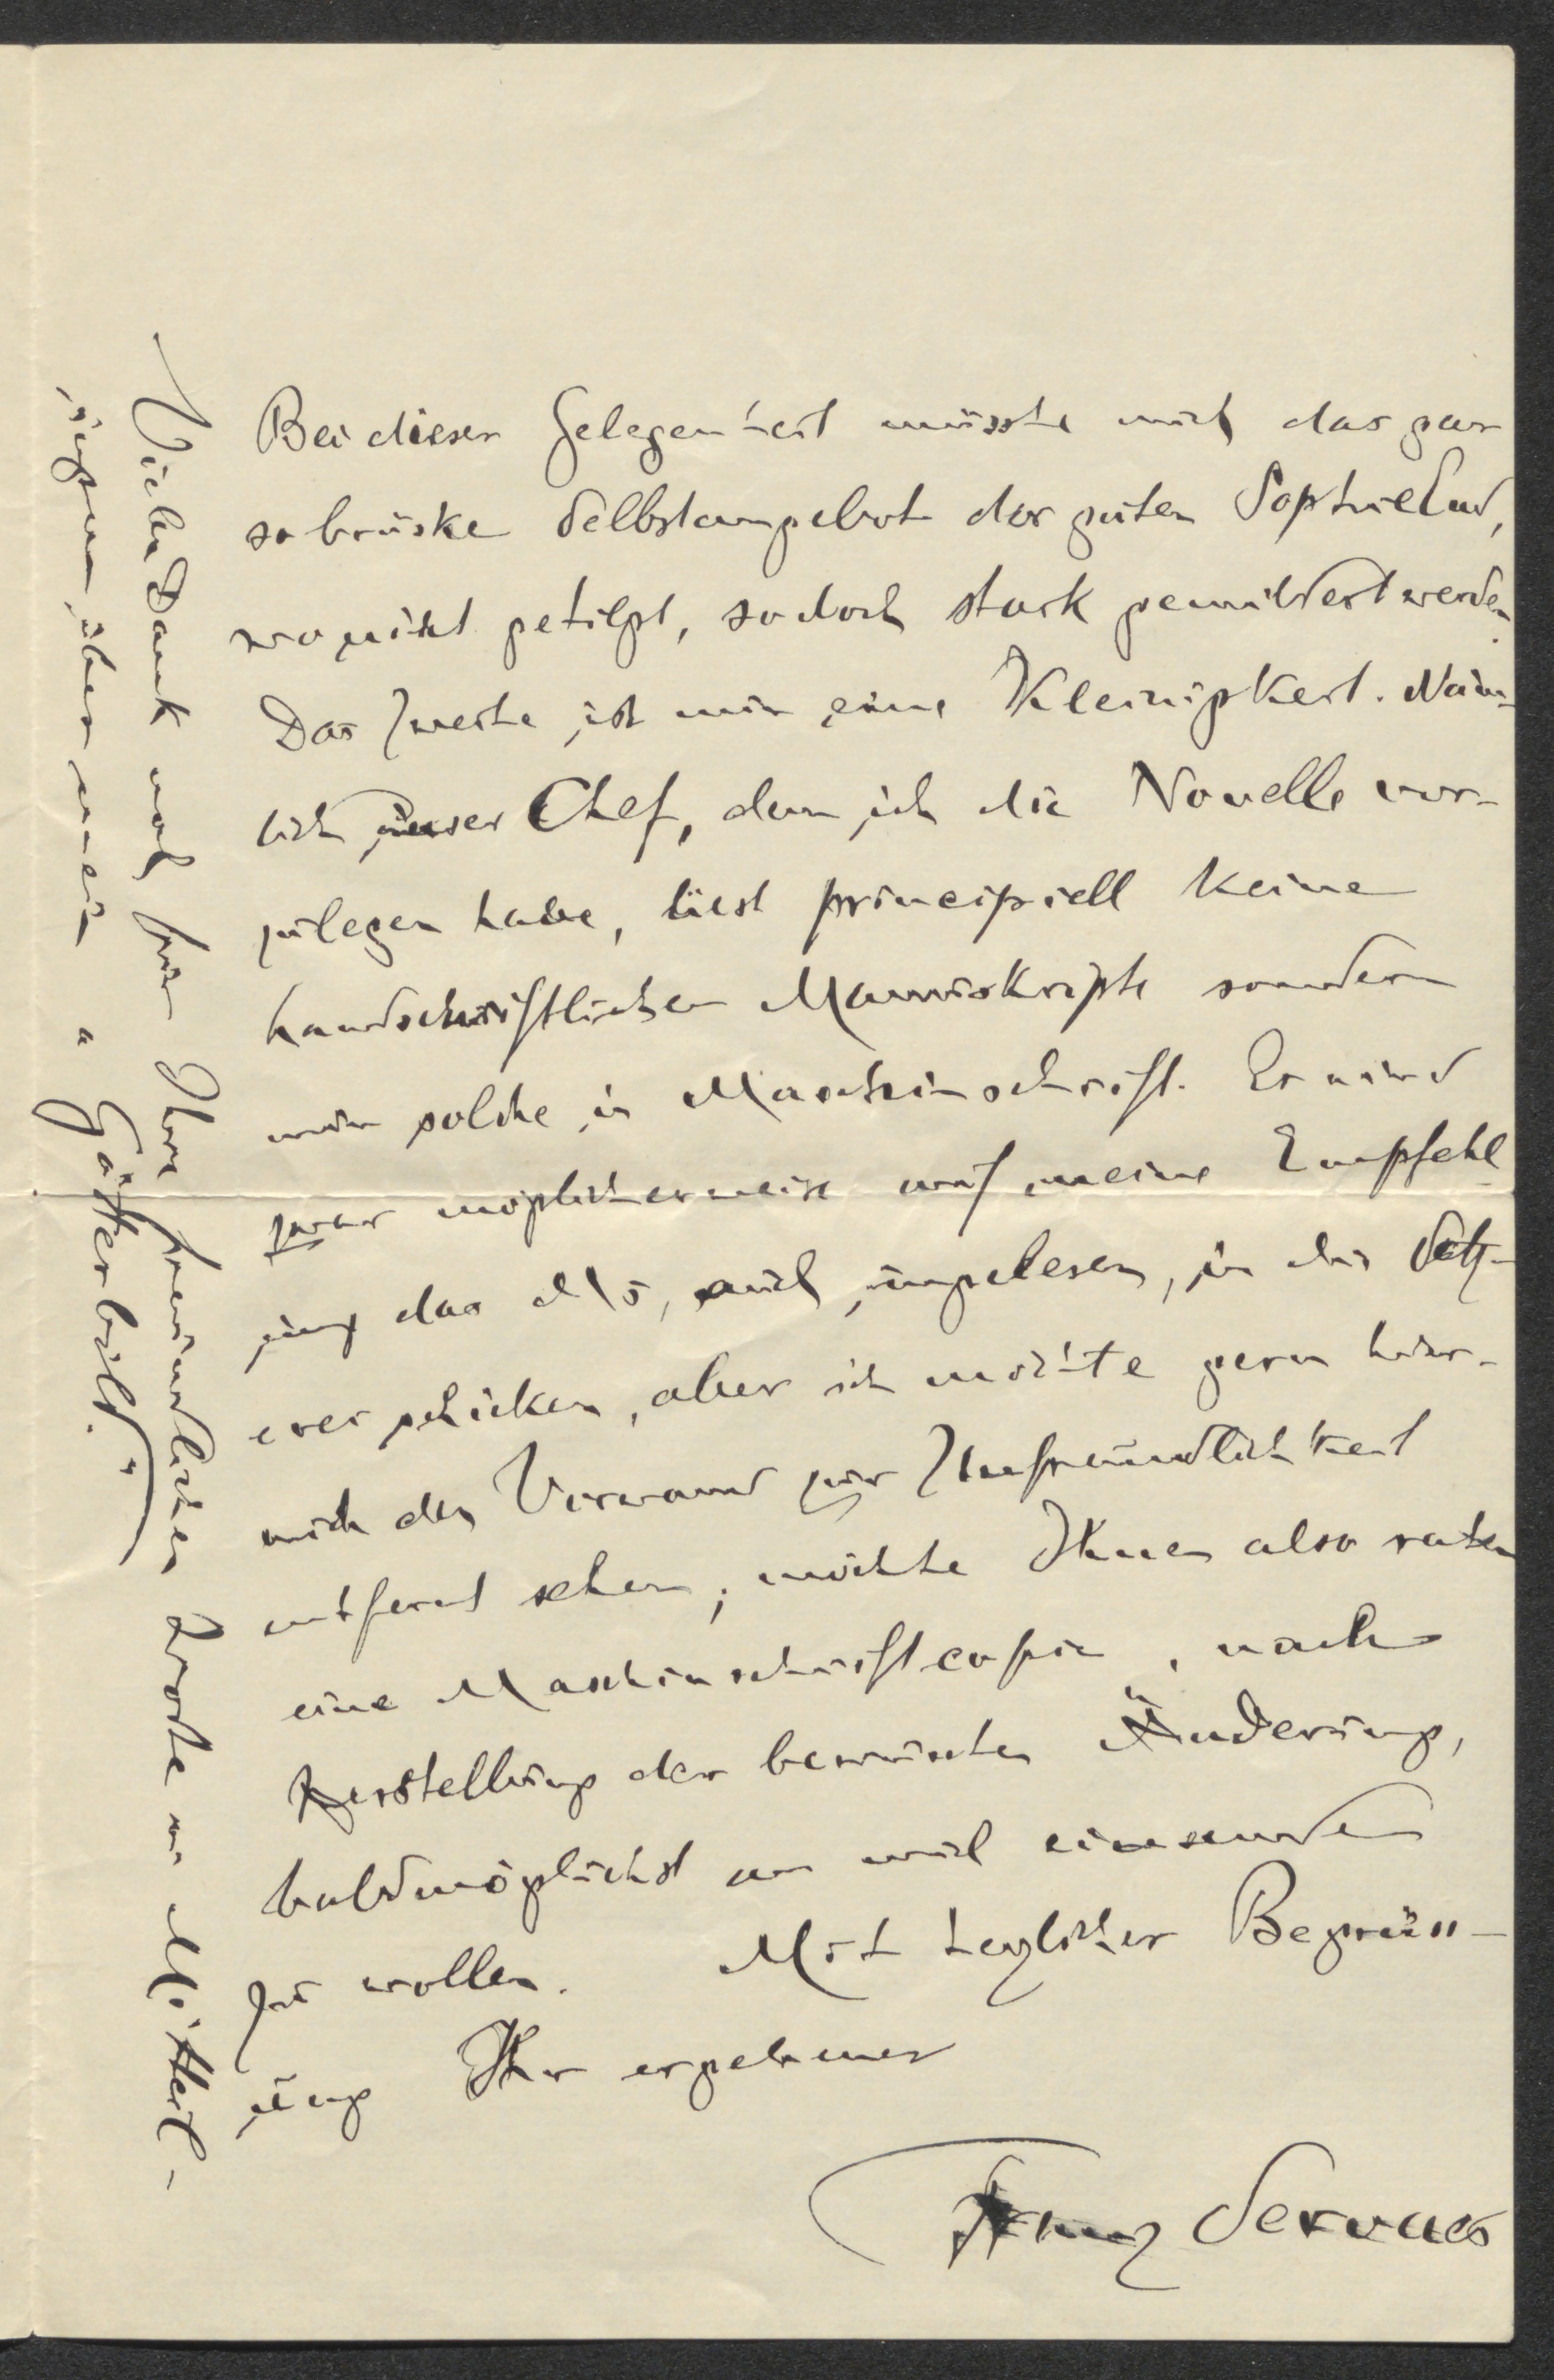 Bei dieser Gelegenheit müsste auch das gar
so brüske Selbstangebot der guten Sophie
wo nicht getilgt, so doch stark gemildert werden.
Das Zweite ist nur eine Kleinigkeit. Näm-
lich unser Chef, dem ich die Novelle vor-
zulegen habe, liest principiell keine
handschriftlichen Manuskripte sondern
nur solche in Maschinschrift. Er wird
zwar möglicherweise auf meine Empfehl-
ung das Ms, auch ungelesen, in die Setz-
erei schicken, aber ich möchte gern hier-
mit den Vorwand zur Unfreundlichkeit
entfernt sehen, möchte Ihnen also raten
eine Maschinschriftcopie, nach
Herstellung der bewussten Änderung,
baldmöglichst an mich einsenden
zu wollen. Mit herzlicher Begrüss-
ung Ihr ergebener
Franz Servaes
Vielen Dank noch für Ihre freundlichen Worte u. Mitteil-
ungen über mein "Götterbild."